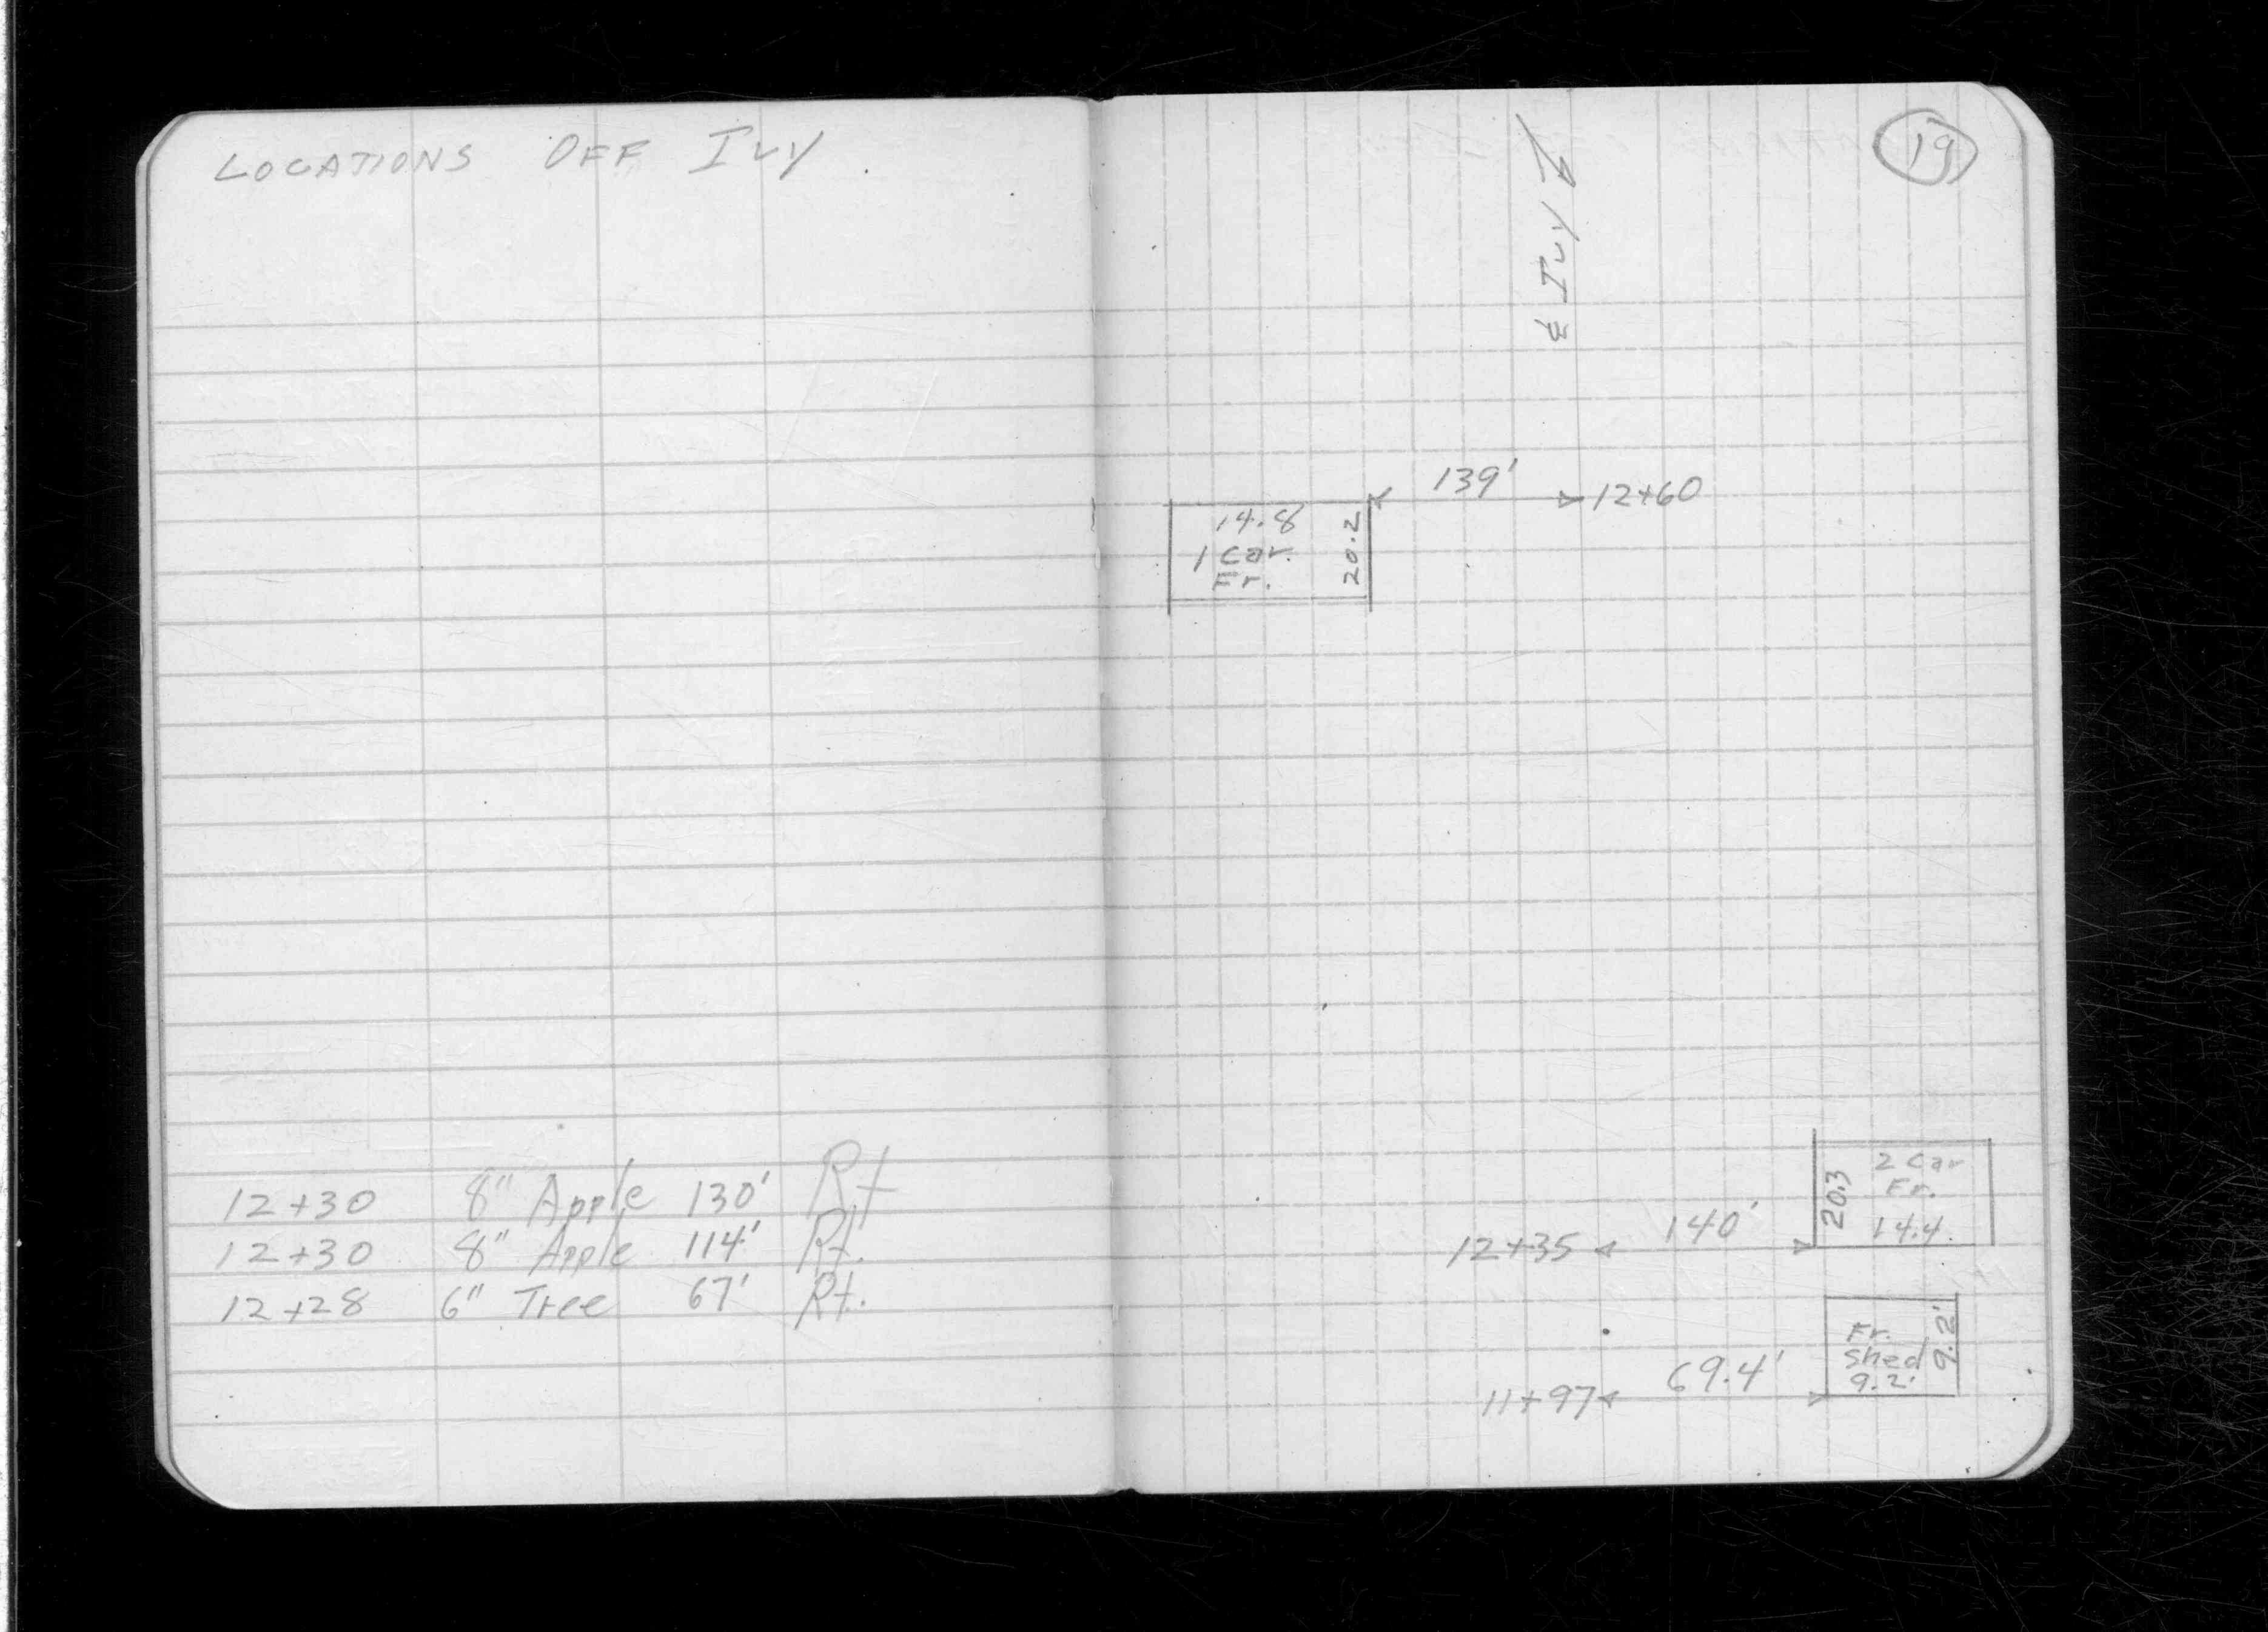 LOCATIONS OFF IVY
12+30 8" Apple 130' Rt
12+30 8" Apple 114' Rt.
12+28 6" Tree 67' Rt.
19
℄ Ivy
139' 12+60
14.8 20.2
1 Car.
Fr.
2 Car
Fr.
20.3
14.4
12+35 140'
Fr.
Shed 9.2'
9.2'
11+97 69.4'